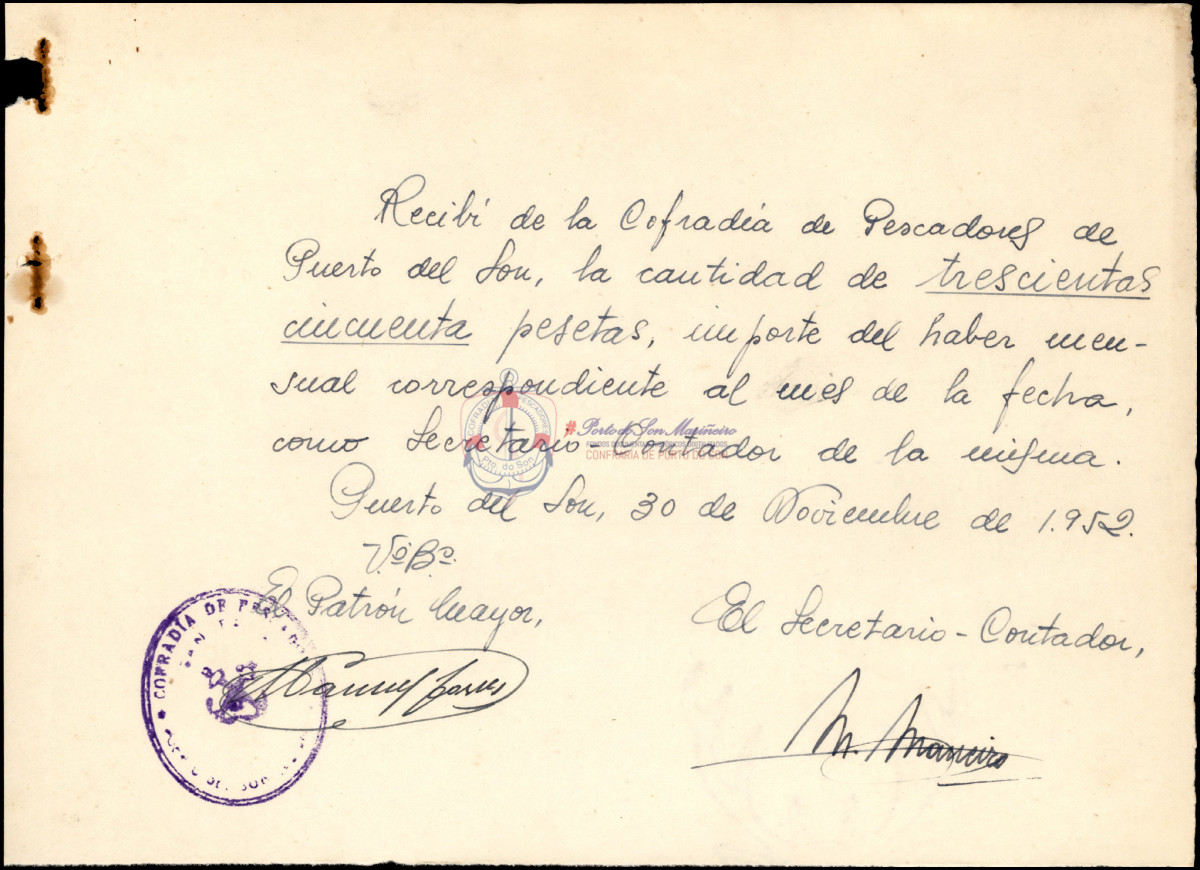 Recibí de la Cofradía de Pescadores de
Puerto del Son, la cantidad de trescientas
cincuenta pesetas, importe del haber men-
sual correspondiente al mes de la fecha,
como Secretario Contador de la misma.
COFRADÍA PESCADORES
Pto. do Son
# Porto do Son Mariñeiro
CONFRARÍA DE PORTO DO SON
Puerto del Son, 30 de Noviembre de 1.952.
VºBº.
El Patrón Mayor,
El Secretario-Contador,
COFRADÍA DE
Manuel
M. Maneiro